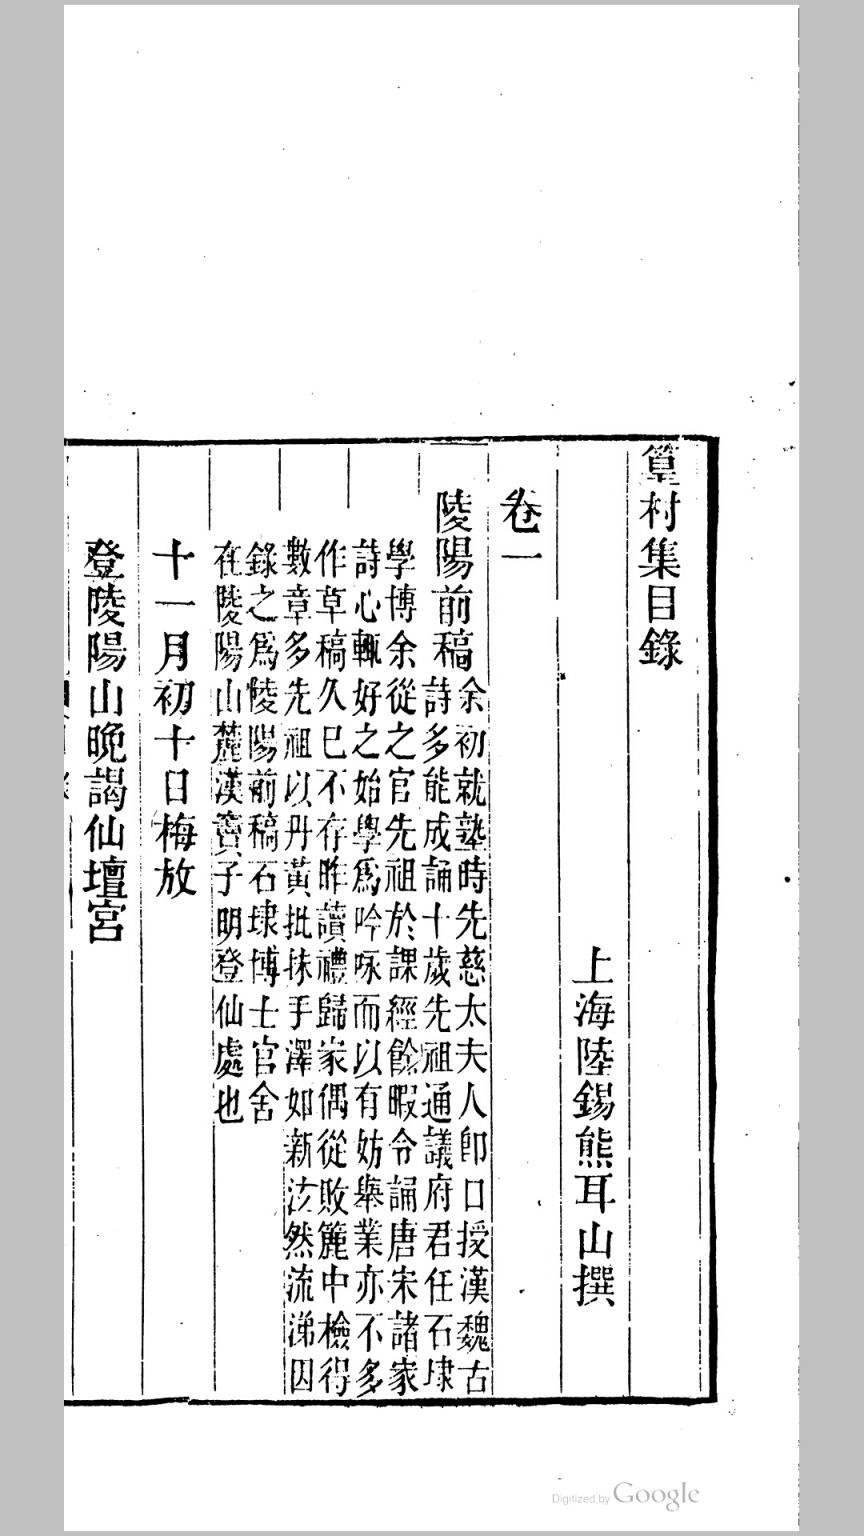 篁村集目錄
上海陸錫熊耳山撰
卷一
陵陽前稿
余初就塾時先慈太夫人卽口授漢魏古
詩多能成誦十歲先祖通議府君任石埭
學博余從之官先祖於課經餘暇令誦唐宋諸家
詩心輒好之始學爲吟咏而以有妨舉業亦不多
作草稿久已不存昨讀禮歸家偶從敗簏中檢得
數章多先祖以丹黃批抹手澤如新泫然流涕因
錄之爲陵陽前稿石埭博士官舍
在陵陽山麓漢竇子明登仙處也
十一月初十日梅放
登陵陽山晚謁仙壇宮
Digitized by Google